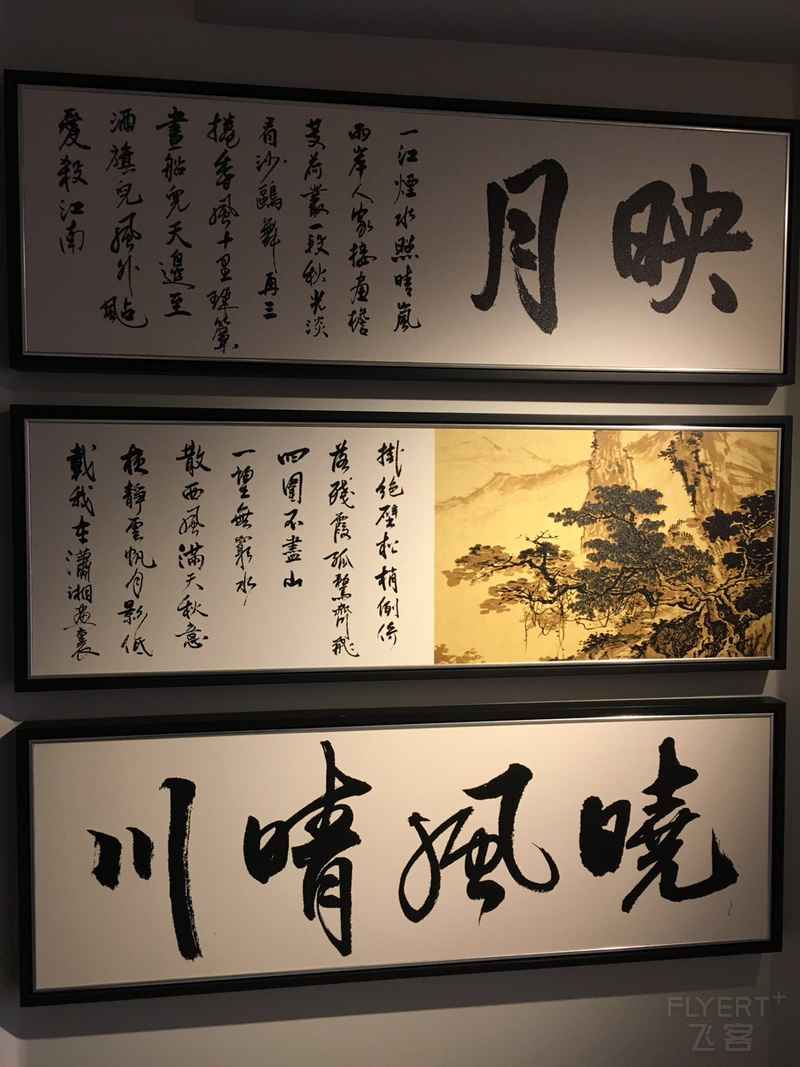 映月
一江煙水照晴嵐
兩岸人家接畫檐
芰荷叢一段秋光淡
看沙鷗舞再三
捲香風十里珠簾
畫船兒天邊至
酒旗兒風外颭
愛殺江南
掛絕壁松梢倒倚
落殘霞孤鶩齊飛
四圍不盡山
一望無窮水
散西風滿天秋意
夜靜雲帆月影低
載我在瀟湘畫裏
曉風晴川
FLYERT+
飞客